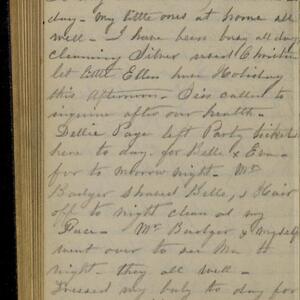 day - My little ones at home all
well - I have been busy all day
cleaning Silver used Christmas
let Ellen have Holiday
this Afternoon - Siss called to
inquire after our health -
Dellie Page left Party Tickets
here to day for Belle & Eva -
for to morrow night - Mr
Badger shaved Belle, s Hair
off to night clean at my
Place - Mr Badger & myself
went over to see Ma to
night - they all well -
Dressed my baby to day for